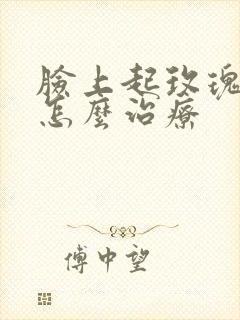 臉上起玫瑰
怎麼治療
傅中望